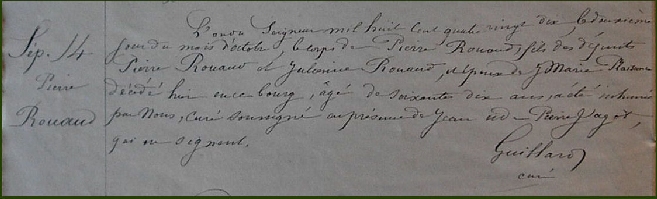 Sep. 14
Pierre
Rouaud
L'an du Seigneur mil huit cent quatre vingt dix, le deuxième
jour du mois d'octobre, le corps de Pierre Rouaud, fils des défunts
Pierre Rouaud et Julienne Rouaud, et époux de Marie
décédé hier en ce bourg, âgé de soixante dix ans, a été inhumé
par Nous, curé soussigné en présence de Jean et de Pierre Jagot,
qui ne signent.
Guillard
curé